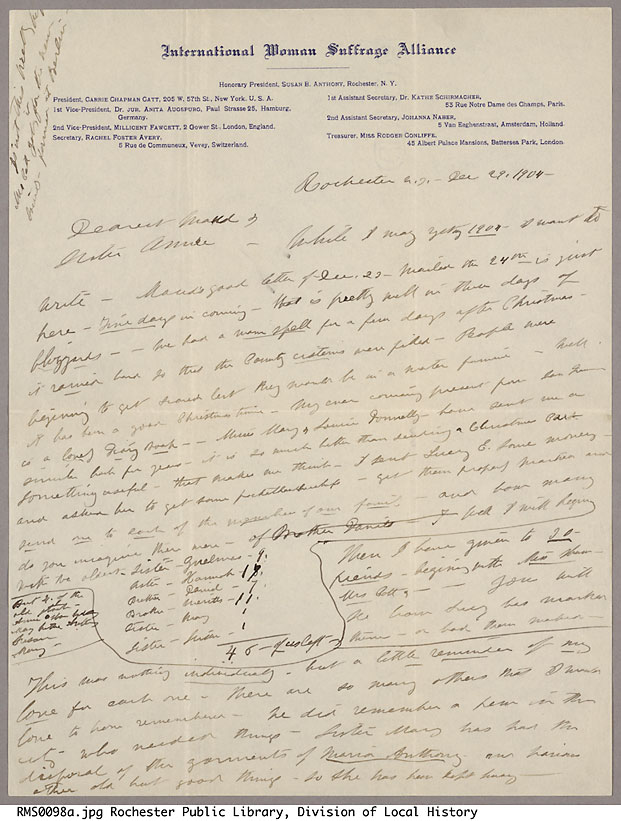 International Woman Suffrage Alliance
Honorary President, SUSAN B. ANTHONY, Rochester, N. Y.
President, CARRIE CHAPMAN CATT, 205 W. 57th St., New York, U. S. A.
1st Vice-President, Dr. JUR. ANITA AUGSPURG, Paul Strasse 25, Hamburg,
Germany.
2nd Vice-President, MILLICENT FAWCETT, 2 Gower St., London, England.
Secretary, RACHEL FOSTER AVERY,
6 Rue de Communeux, Vevey, Switzerland.
1st Assistant Secretary, Dr. KATHE SCHIRMACHER,
53 Rue Notre Dame des Champs, Paris.
2nd Assistant Secretary, JOHANNA NABER,
5 Van Eeghenstraat, Amsterdam, Holland.
Treasurer, MISS RODGER CONLIFFE,
45 Albert Palace Mansions, Battersea Park, London
Rochester N.Y. - Dec 29, 1904 -
Dearest Maud &
Sister Annie - While I may yet say 1904 - I want to
write - Maud's good letter of Dec. 23 - mailed the 24th is just
here - Five days in coming - that is pretty well in these days of
blizzards - - We had a warm spell for a few days after Christmas -
it rained hard so that the County cisterns were filled - People were
beginning to get scared lest they would be in a water famine - Well
it has been a good Christmas time - My ever coming present from
is a lovely Diary Book - - Miss Mary & Louise Donnelly have sent me a
similar book for years - it is so much better than sending a Christmas Card
something useful - that makes me think - I sent Lucy E. some money -
and asked her to get some - get them properly marked and
send one to each of the member of our family - and how many
do you imagine there were - of Brother Daniel's - I will begin
with the oldest - Sister Guelma's 9.
Sister - Hannah - 1
Brother - Daniel - 7.
Brother - Merritt's - 1
Sister - Mary 1
Sister - Susan - 1
45 - of us left -
But 2. of the
old
Mary -
Then I have given to 20
friends - beginning with Miss Shaw -
Mrs Catt - You will
see how Lucy has marked
them - or had them marked -
This was nothing individually - but a little reminder of my
love for each one - There are so many others that I would
love to have remembered - he did remember a few in this
way - who needed things - Sister Mary has had the
disposal of the garments of Maria Anthony and various
other old but good things - so she has been kept busy -
RMS0098a.jpg Rochester Public Library, Division of Local History